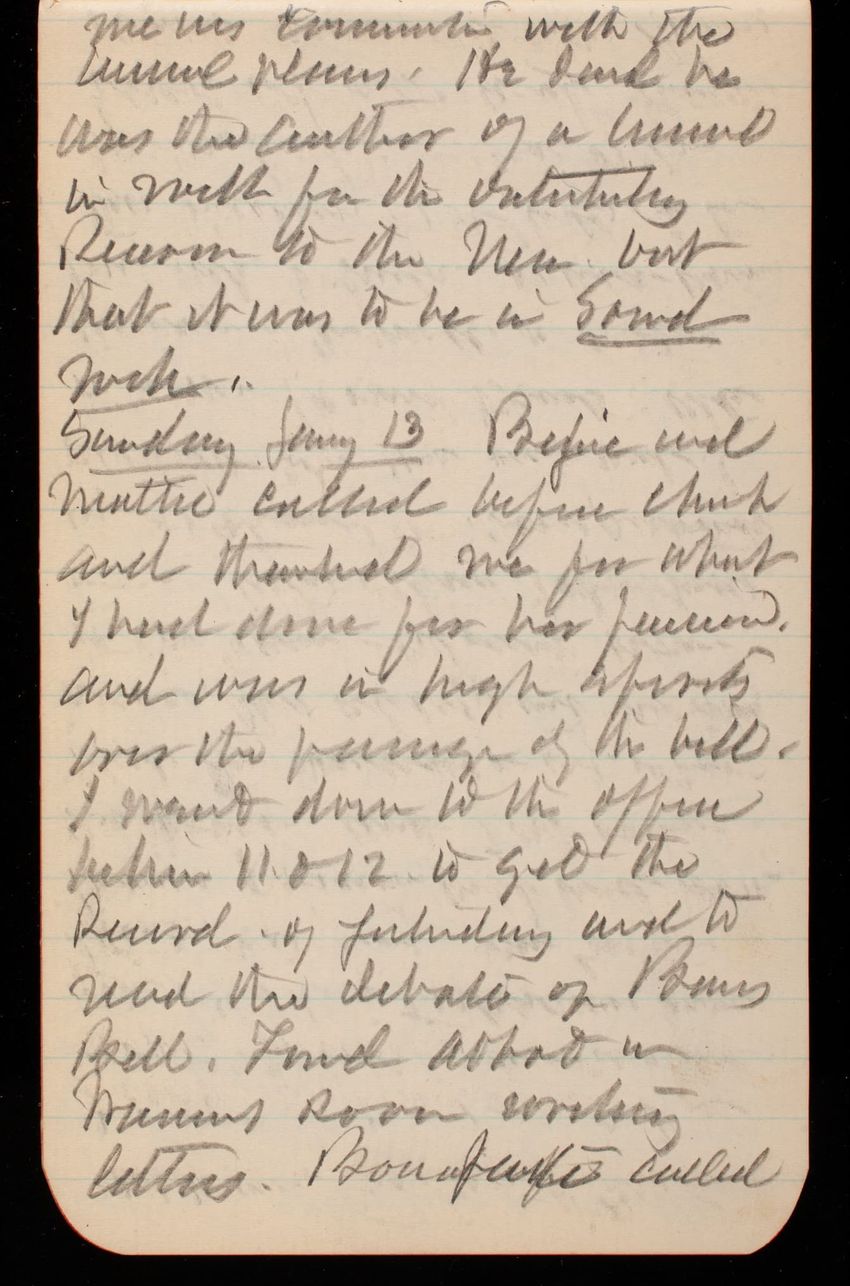 me in connection with the
tunnel plans. He said he
was the author of a tunnel
in rock for the distributing
Reservoir to the New but
that it was to be in Sound
rock.
Sunday Jany 13 and
Mattie called before church
and thanked me for what
I had done for her pension.
and was in high spirits
over the passage of the bill.
I went down to the office
between 11 & 12 to get the
Record of Saturday and to
read the debate of
Bell. Found Abbot in
room writing
letters. called